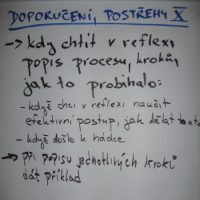 DOPORUČENÍ, POSTŘEHY X
→ kdy chtít v reflexi
popis procesu, kroků,
jak to probíhalo:
- když chci v reflexi naučit
efektivní postup, jak dělat
- když došlo k hádce
→ při popisu jednotlivých kroků
dát příklad